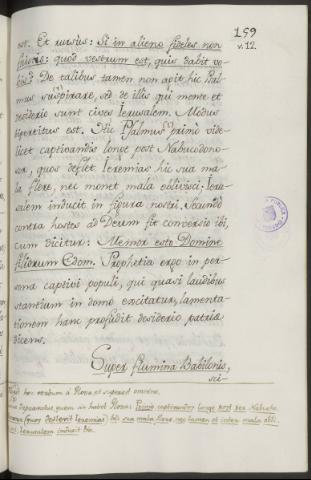 159
v. 12.
est. Et rursus: Si in alieno fideles non
fuistis: quod vestrum est, quis dabit vo-
bis? De talibus tamen non agit hic Psal-
mus suspirare, sed de illis qui mente et
desiderio sunt cives Ierusalem. Modus
tripertitus est. Hic Psalmus primo vide-
licet captivandis longe post Nabucodono-
sor, quos deflet Ieremias hic sua ma-
la flere, nec monet mala oblivisci, Ieru-
salem inducit in figura nostri. Secundo
contra hostes ad Deum fit conversio ibi,
cum dicitur: Memor esto Domine
filiorum Edom. Prophetia ergo in per-
sona captivi populi, qui quasi laudibus
stantium in domo excitatur, lamenta-
tionem hanc profudit desiderio patriae
dicens.
Super flumina Babilonis,
sci-
hoc verbum à
captivandis longe post per Nabucho
deslevit Ieremias hic sua mala flere, nec tamen et inter mala obli
Ierusalem inducit